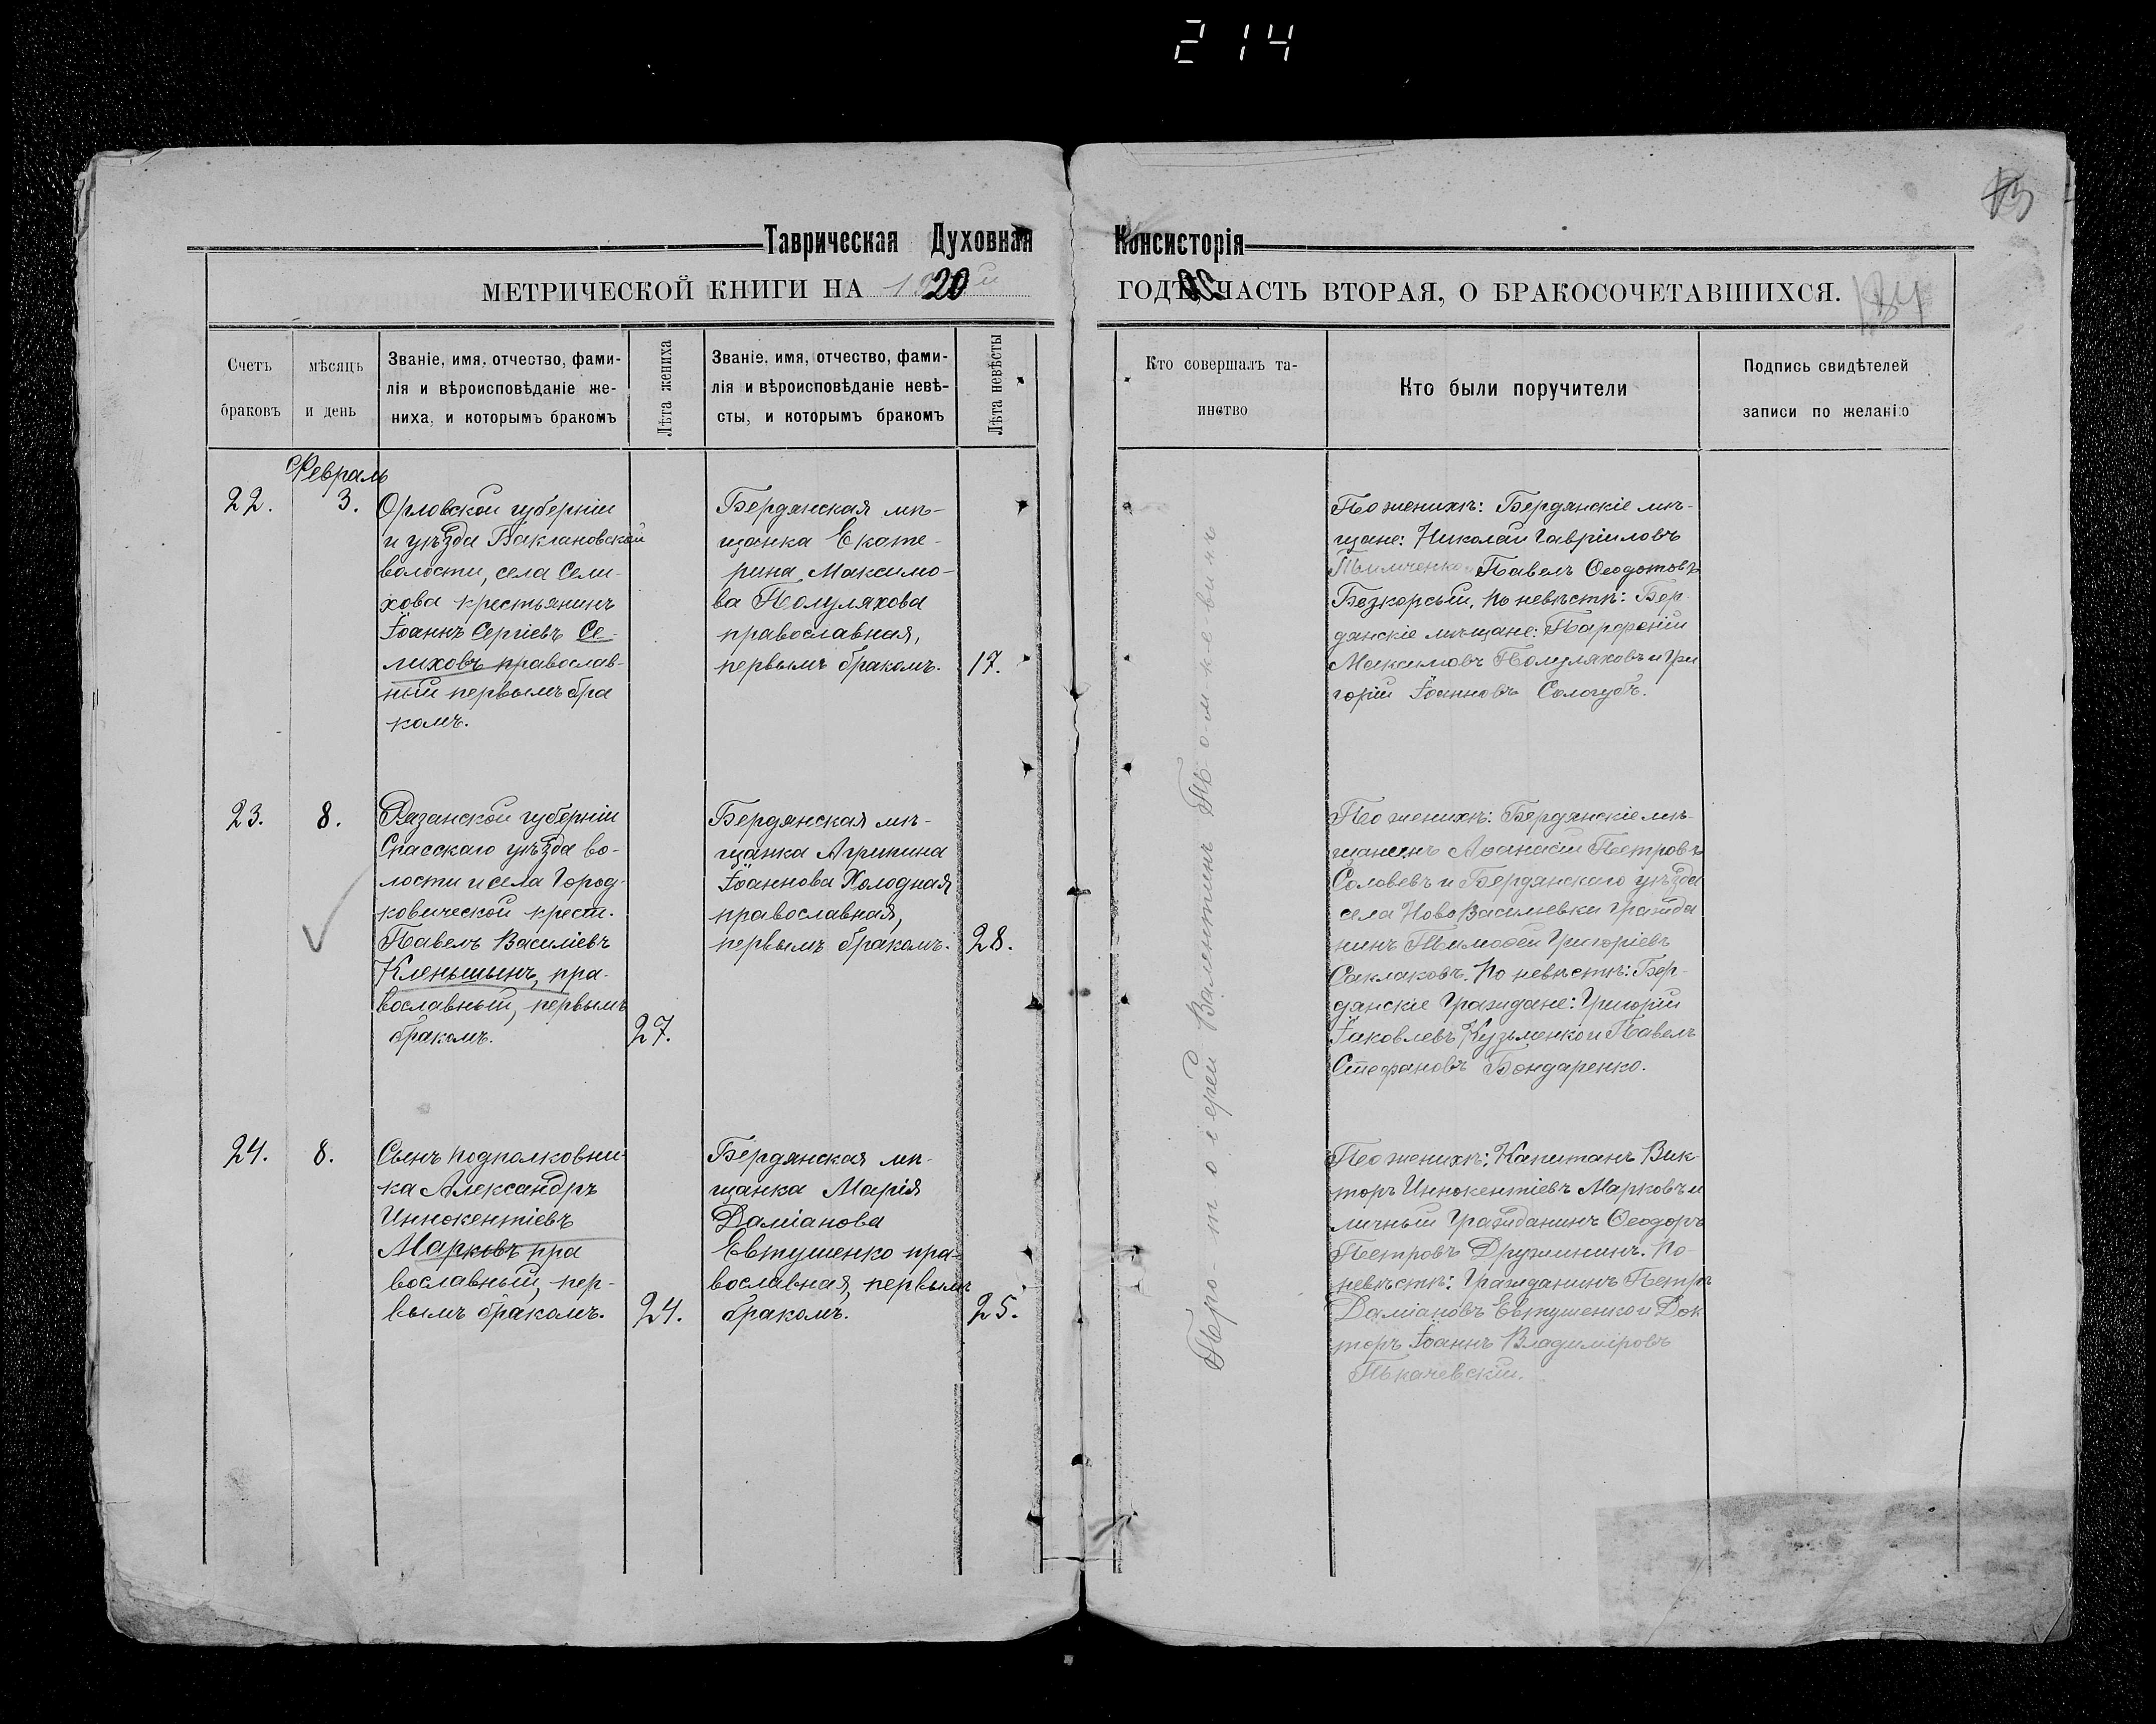 214
13
Таврическая Духовная Консисторія
МЕТРИЧЕСКОЙ КНИГИ НА 1920 ГОДЪ, ЧАСТЬ ВТОРАЯ, О БРАКОСОЧЕТАВШИХСЯ.
184
Счетъ браковъ
мѣсяцъ и день
Званіе, имя, отчество, фами-
лія и вѣроисповѣданіе же-
ниха, и которымъ бракомъ
Лѣта жениха
Званіе, имя, отчество, фами-
лія и вѣроисповѣданіе невѣ-
сты, и которымъ бракомъ
Лѣта невѣсты
Кто совершалъ та-
инство
Кто были поручители
Подпись свидѣтелей
записи по желанію
Февраль
22.
3.
Орловской губерніи
и уѣзда Баклановской
волости, села Сели-
хова крестьянинъ
Іоаннъ Сергіевъ Се-
лиховъ православ-
ный первымъ бра
комъ.
Бердянская мѣ-
щанка Екате-
рина Максимо-
ва Полуляхова
православная,
первымъ бракомъ.
17.
По женихѣ: Бердянскіе мѣ-
щане: Николай Гавріиловъ
Пилипченко и Павелъ Ѳеодотовъ
Безкорсый, по невѣстѣ: Бер
дянскіе мѣщане: Парфеній
Максимовъ Полуляховъ и Гри
горій Іоанновъ Сологубъ.
23.
8.
Рязанской губерніи
Спасскаго уѣзда во-
лости и села Город-
ковической крест.
Павелъ Василіевъ
Кленьшынъ, пра-
вославный, первымъ
бракомъ.
27.
Бердянская мѣ-
щанка Агрипина
Іоаннова Холодная
православная,
первымъ бракомъ.
28.
По женихѣ: Бердянскіе мѣ-
щанинъ Аѳанасій Петровъ
Соловевъ и Бердянскаго уѣзда
села Ново Василіевки гражда
нинъ Тимоѳей Григоріевъ
Саклаковъ. По невѣстѣ: Бер-
дянскіе граждане: Григорій
Іаковлевъ Кузьменко и Павелъ
Стефановъ Бондаренко.
24.
8.
Сынъ подполковни-
ка Александръ
Иннокентіевъ
Марковъ пра
вославный, пер-
вымъ бракомъ.
24.
Бердянская мѣ-
щанка Марія
Даміанова
Евтушенко пра-
вославная, первымъ
бракомъ.
25.
По женихѣ: Капитанъ Вик-
торъ Иннокентіевъ Марковъ и
личный гражданинъ Ѳеодоръ
Петровъ Дружининъ. По
невѣстѣ: гражданинъ Петръ
Даміановъ Евтушенко и Док
торъ Іоаннъ Владиміровъ
Ткачевскій.
Протоіерей Валентинъ Томкевичъ